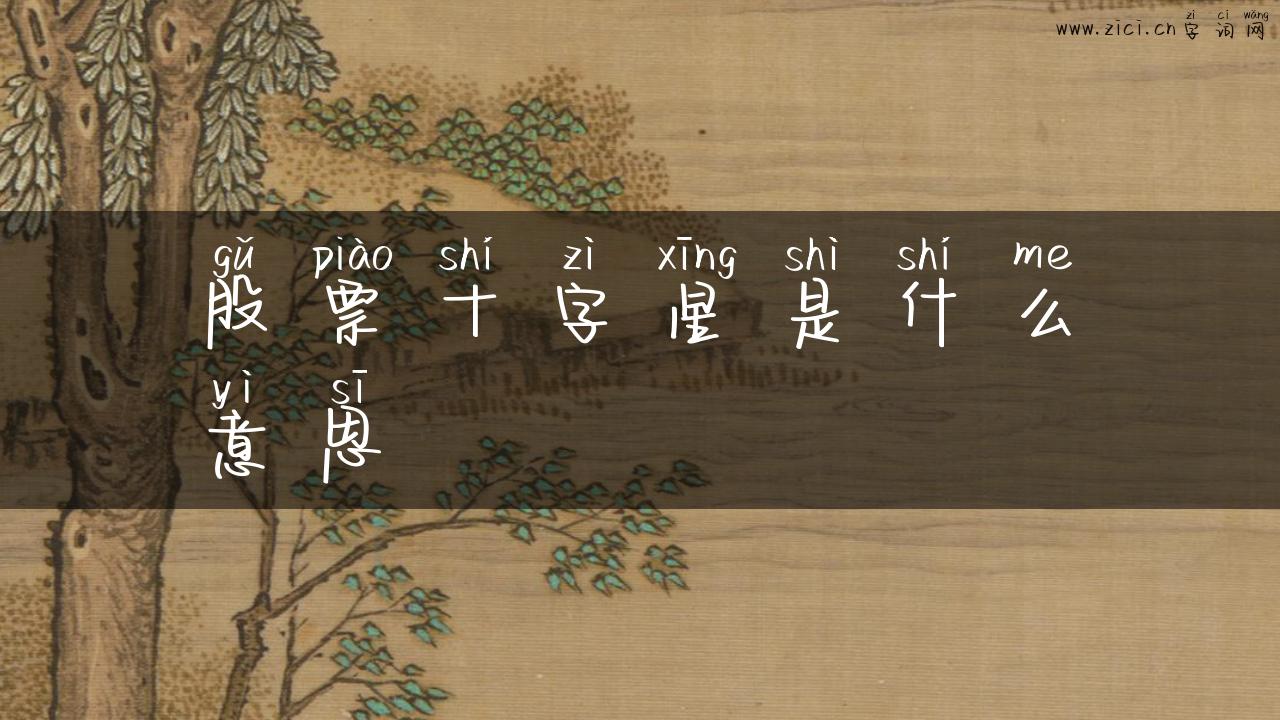 zì cí wǎng
www.zici.cn 字 词 网
gǔ piào shí zì xīng shì shí me
股 票 十 字 星 是 什 么
yì sī
意 思